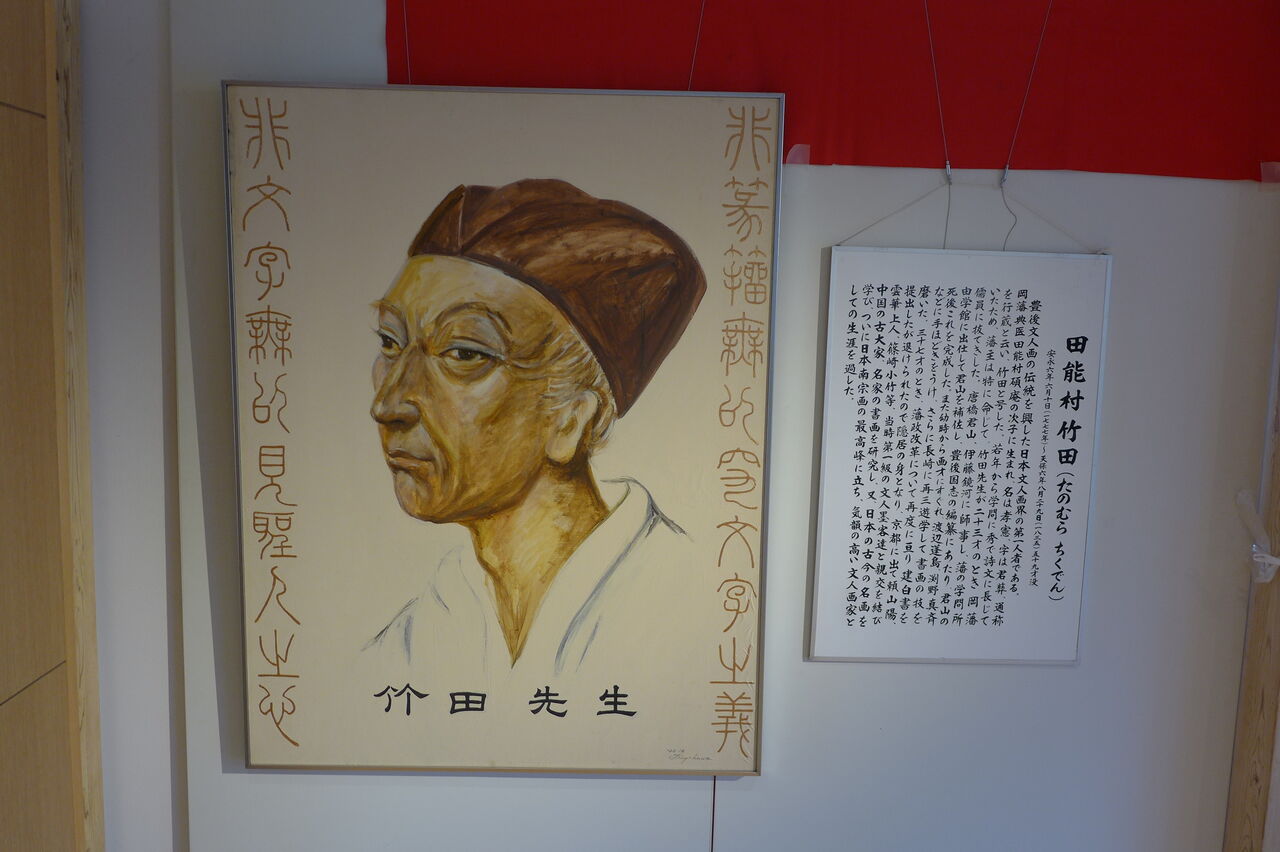 非篆籀無以究文字之義
非文字無以見聖人之心
竹田先生
田能村竹田（たのむら ちくでん）
安永六年六月十日（一七七七年）～天保六年八月二十九日（一八三五）五十九才没
豊後文人画の伝統を興した日本文人画界の第一人者である。
岡藩典医田能村碩庵の次子に生まれ、名は孝憲、字は君彝、通称
を行蔵と云い、竹田と号した。若年から学問に秀で詩文に長じて
いたため、藩主は特に命じて、竹田先生が二十三才のとき、岡藩
儒員に抜てきした。唐橋君山、伊藤鏡河に師事し、藩の学問所
由学館に出仕して君山を補佐し、豊後国志の編纂にあたり、君山の
死後これを完成した。また幼時から画才にすぐれ、渡辺蓬島、渕野真斉
などに手ほどきをうけ、さらに長崎に再三遊学して書画の技を
磨いた。三十七才のとき、藩政改革について再度に亘り、建白書を
提出したが退けられたので隠居の身となり、京都に出て頼山陽、
雲華上人、篠崎小竹等、当時第一級の文人墨客達と親交を結び
中国の古大家、名家の書画を研究し、又、日本の古今の名画を
学び、ついに日本南宗画の最高峰に立ち、気韻の高い文人画家と
しての生涯を過した。